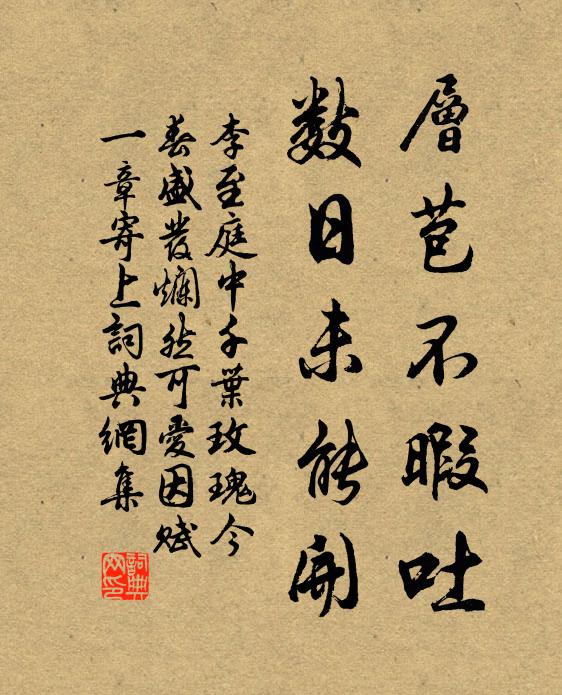 層苞不暇吐
數日未能開
李至庭中千葉玫瑰今
春盛發爛然可愛因賦
一章寄上詞典網集
詞典網印